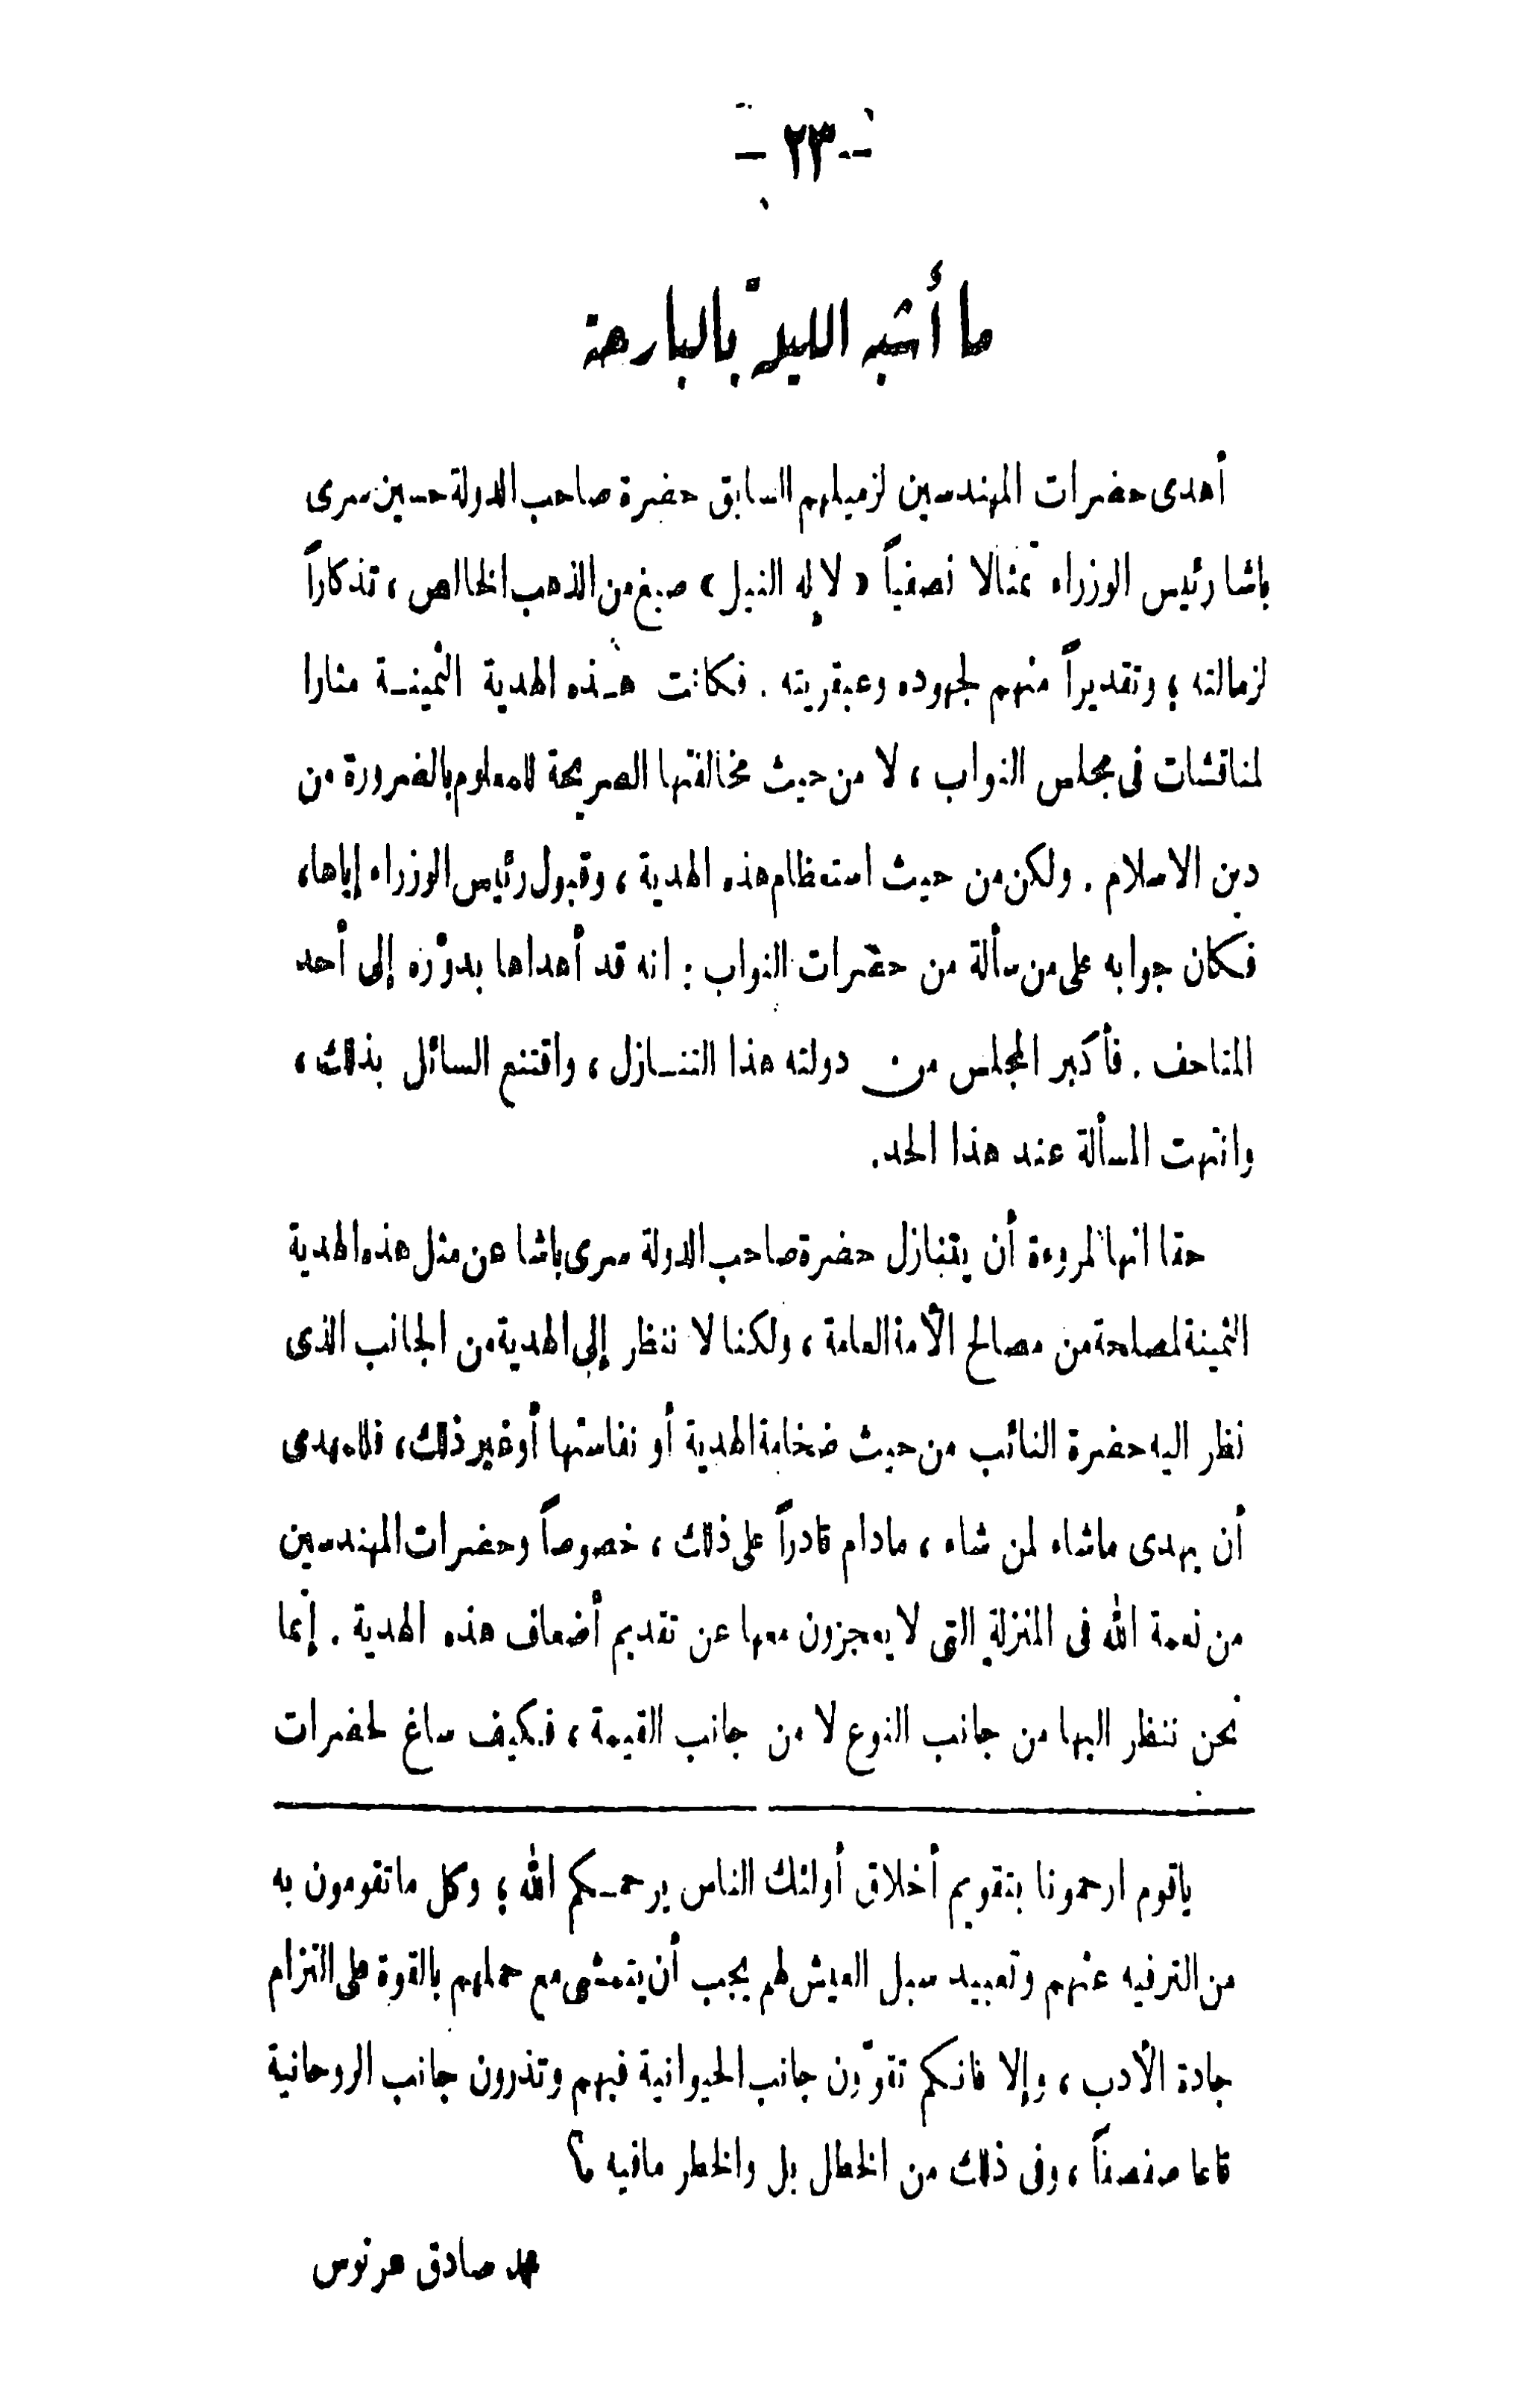 - ٢٣ -
ما أشبه الليلة بالبارحة
أهدى حضرات المهندسين لزميلهم السابق حضرة صاحب الدولة حسين سرى
باشا رئيس الوزراء تمثالا نصفياً « لإله النيل » صيغ من الذهب الخالص ، تذكاراً
لزمالته ؛ وتقديراً منهم لجهوده وعبقريته . فكانت هذه الهدية الثمينة مثارا
لمناقشات فى مجلس النواب ، لا من حيث مخالفتها الصريحة للمعلوم بالضرورة من
دين الاسلام . ولكن من حيث استعظام هذه الهدية ، وقبول رئيس الوزراء إياها،
فكان جوابه على من سألة من حضرات النواب : انه قد أهداها بدوره إلى أحد
المتاحف . فأكبر المجلس من دولته هذا التنازل ، واقتنع السائل بذلك ،
وانتهت المسألة عند هذا الحد.
حقا انها لمروءة أن يتنازل حضرة صاحب الدولة سرى باشا عن مثل هذه الهدية
الثمينة لمصلحة من مصالح الأمة العامة ، ولكنا لا ننظر إلى الهدية من الجانب الذى
نظر اليه حضرة النائب من حيث ضخامة الهدية أو نفاستها أو غير ذلك ، فللمهدى
أن يهدى ماشاء لمن شاء ، مادام قادراً على ذلك ، خصوصاً وحضرات المهندسين
من نعمة الله فى المنزلة التى لا يعجزون معها عن تقديم أضعاف هذه الهدية . إنما
نحن ننظر اليها من جانب النوع لا من جانب القيمة ، فكيف ساغ لحضرات
ياقوم ارحمونا بتقويم أخلاق أولئك الناس يرحمكم الله ؛ وكل ماتقومون به
من الترفيه عنهم وتعبيد سبل العيش لهم يجب أن يتمشى مع حملهم بالقوة على التزام
جادة الأدب ، وإلا فانكم تقوّون جانب الحيوانية فيهم وتذرون جانب الروحانية
قاعا صفصفاً ، وفى ذلك من الخطل بل والخطر مافيه ؟
محمد صادق عرنوس